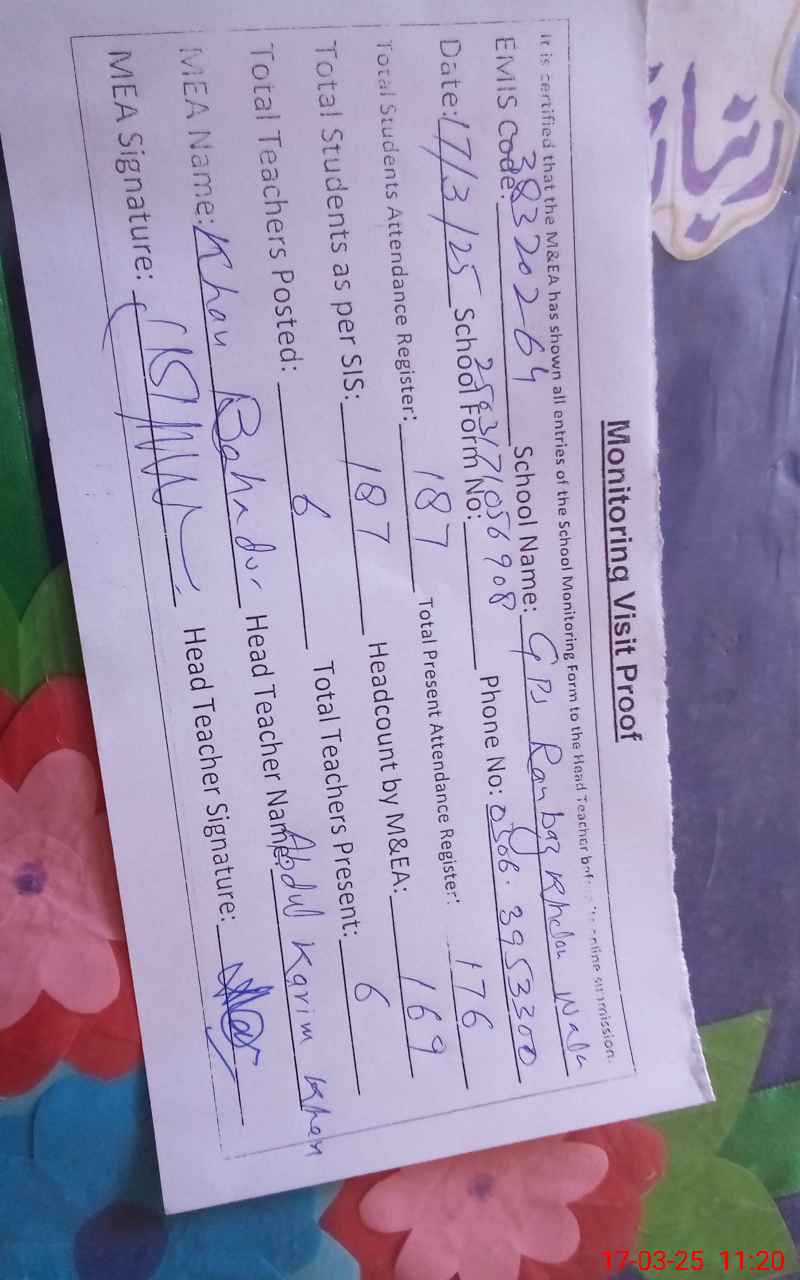 Monitoring Visit Proof
It is certified that the M&EA has shown all entries of the School Monitoring Form to the Head Teacher before online submission.
EMIS Code: 38320264 School Name: GPS Ranbaz Khelan Wala
Date: 17/3/25 School Form No: 2563171056908 Phone No: 0306-3953300
Total Students Attendance Register: 187 Total Present Attendance Register: 176
Total Students as per SIS: 187 Headcount by M&EA: 169
Total Teachers Posted: 6 Total Teachers Present: 6
MEA Name: Khan Bahadur Head Teacher Name: Abdul Karim Khan
MEA Signature: Head Teacher Signature:
17-03-25 11:20